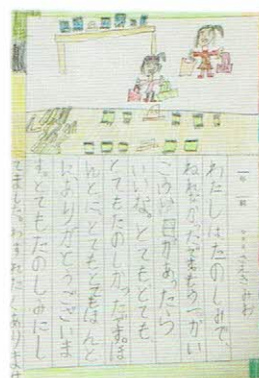 わたしはたのしみで、
ねれなかったでもう一かい
こうゆう日があったら
いいな。とてもとても
とてもたのしかったです。ほ
んとにとてもとてもほんと
にありがとうございま
す。とてもたのしみにし
てました。わすれたくありませ